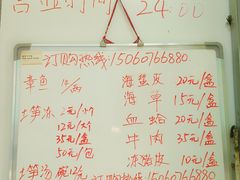 营业时间 24:00
订购热线:15060766880
章鱼 12/两
土笋冻 2元/个
12元/大个
35元/盒
50元/包
海蜇皮 20元/盒
海草 15元/盒
血蛤 20元/盒
牛肉 35元/盒
冻鲨皮 10元/盒
土笋汤
订购热线